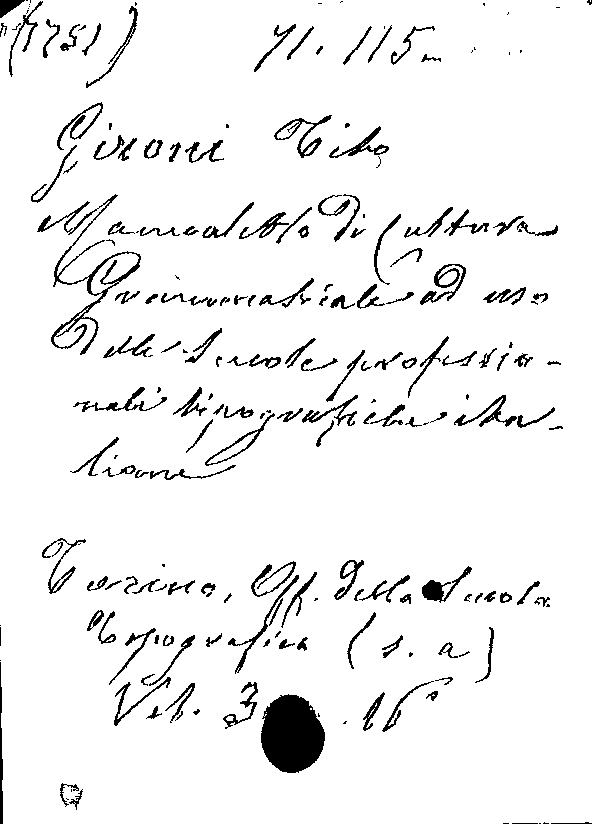 (1751) 71. 115
Gironi Tito
Manualetto di Cultura
Grammaticale ad uso
delle Scuole professio-
nali tipografiche ita-
liane
Torino, Off. della Scuola
Tipografica (s. a)
Vol. 3 . 16°